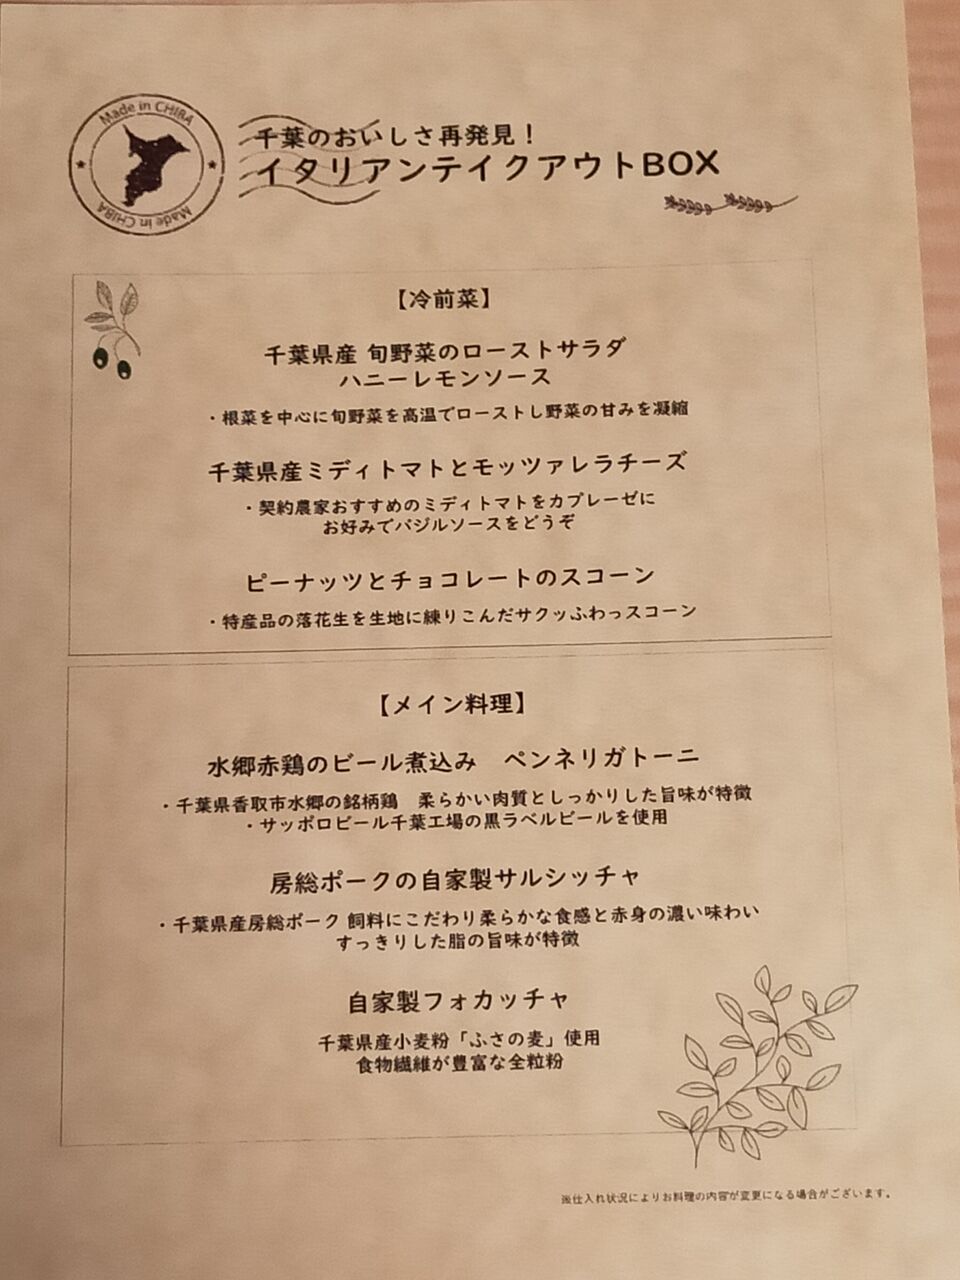 Made in CHIBA
Made in CHIBA
千葉のおいしさ再発見！
イタリアンテイクアウトBOX
【冷前菜】
千葉県産 旬野菜のローストサラダ
ハニーレモンソース
・根菜を中心に旬野菜を高温でローストし野菜の甘みを凝縮
千葉県産ミディトマトとモッツァレラチーズ
・契約農家おすすめのミディトマトをカプレーゼに
お好みでバジルソースをどうぞ
ピーナッツとチョコレートのスコーン
・特産品の落花生を生地に練りこんだサクッふわっスコーン
【メイン料理】
水郷赤鶏のビール煮込み　ペンネリガトーニ
・千葉県香取市水郷の銘柄鶏　柔らかい肉質としっかりした旨味が特徴
・サッポロビール千葉工場の黒ラベルビールを使用
房総ポークの自家製サルシッチャ
・千葉県産房総ポーク 飼料にこだわり柔らかな食感と赤身の濃い味わい
すっきりした脂の旨味が特徴
自家製フォカッチャ
千葉県産小麦粉「ふさの麦」使用
食物繊維が豊富な全粒粉
※仕入れ状況によりお料理の内容が変更になる場合がございます。